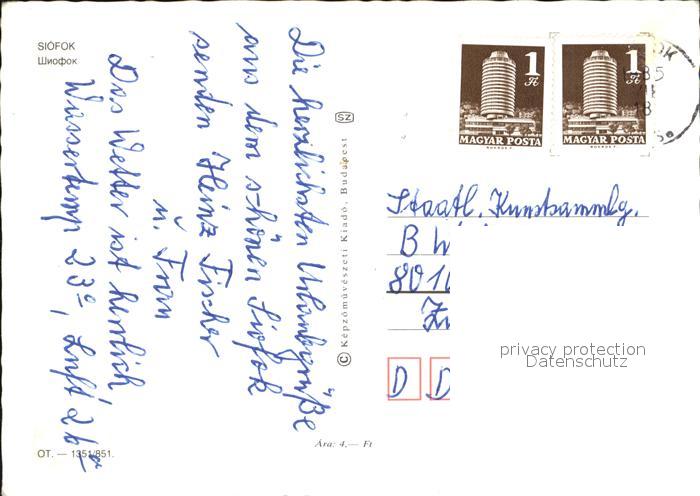 SIÓFOK
Шиофок
Die herzlichsten Urlaubsgrüße
aus dem schönen Siofok
senden Heinz Fischer
u. Frau
Das Wetter ist herrlich
Wassertemp 23°, Luft 26°
OT. — 1351/851.
SZ
© Képzőművészeti Kiadó, Budapest
Ára: 4,— Ft
1 Ft
MAGYAR POSTA
1 Ft
MAGYAR POSTA
OK
85
18
Staatl. Kunstsammlg.
8010
D D
privacy protection
Datenschutz